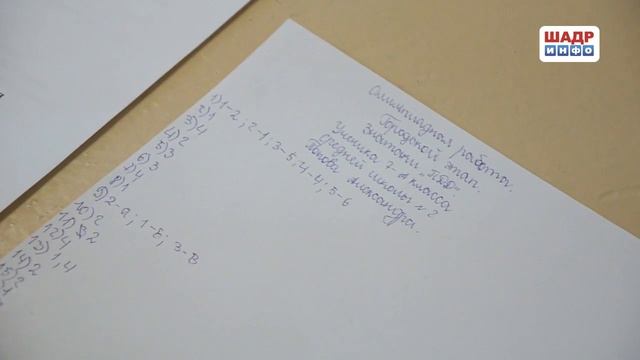 ШАДР
ИНФО
Олимпиадная работа.
Городской этап.
знатоки "ПДД"
Ученика 7 А класса
средней школы №2
Попова Александра.
1) 1-2; 2-1; 3-5; 4-4; 5-6
2) 1
3) 4
4) 2
5) 3
6) 3
7) 4
8) 1
9) 2-а; 1-б; 3-в
10) 2
11) 2
12) 4
13) 1,4
14) 2
15) 2